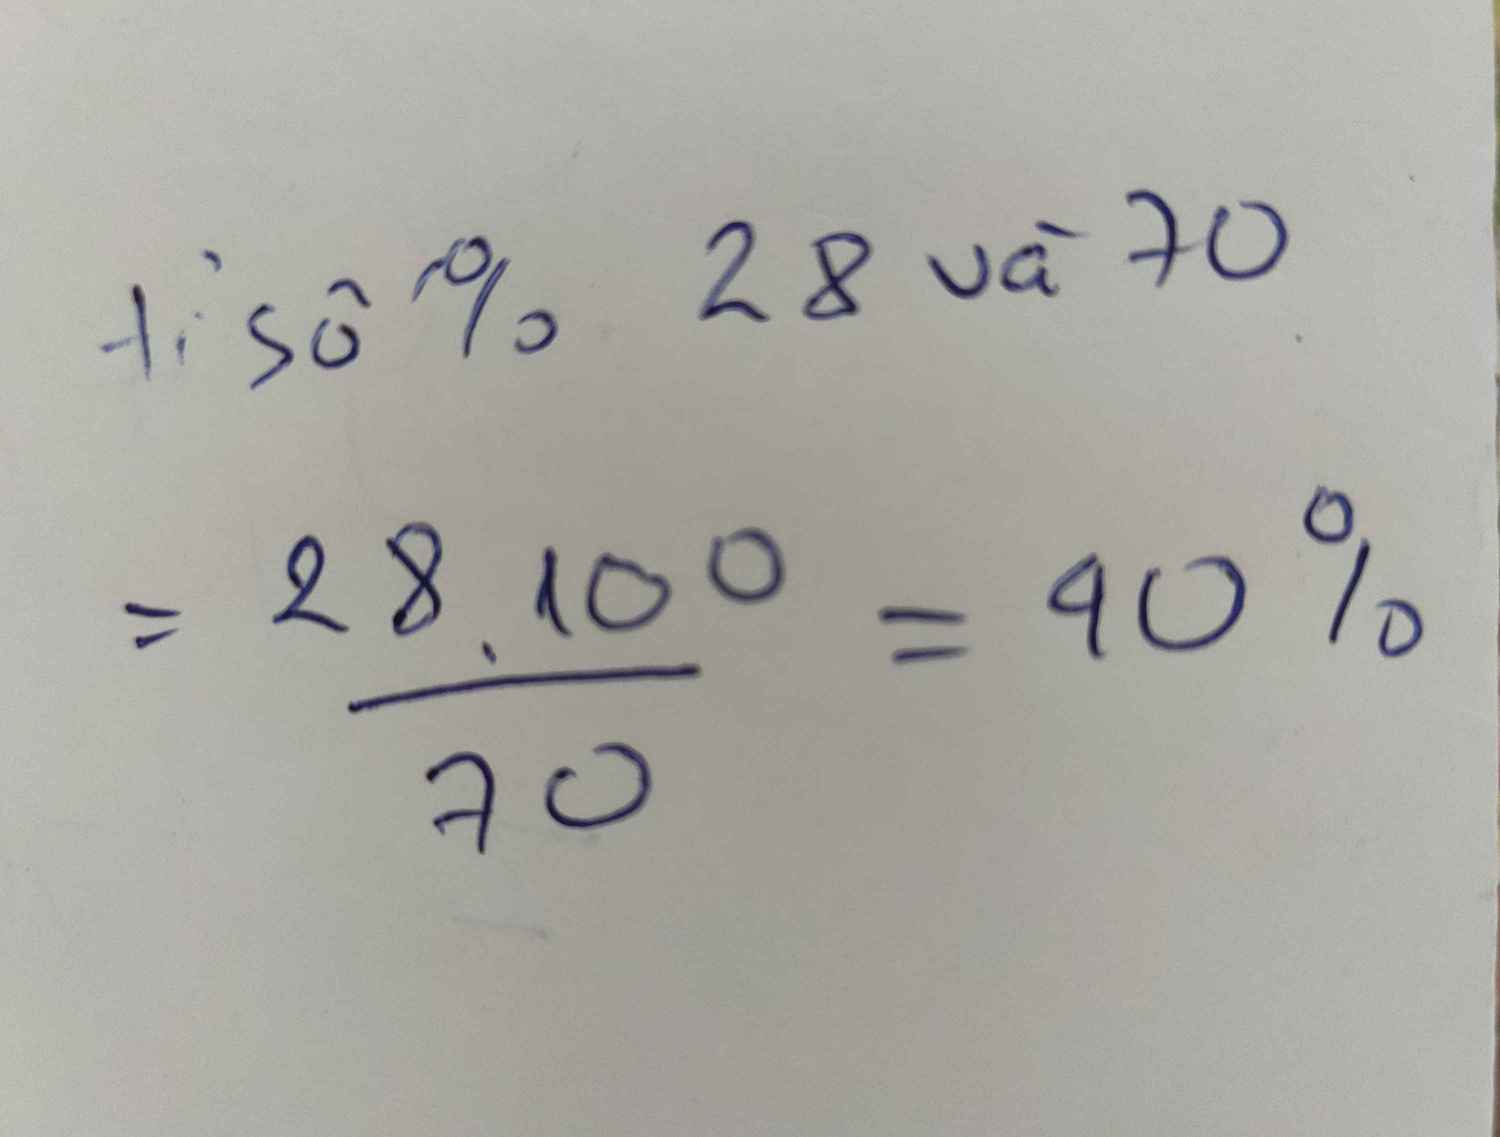 tỉ số % 28 và 70
= 28.100 = 40%
70